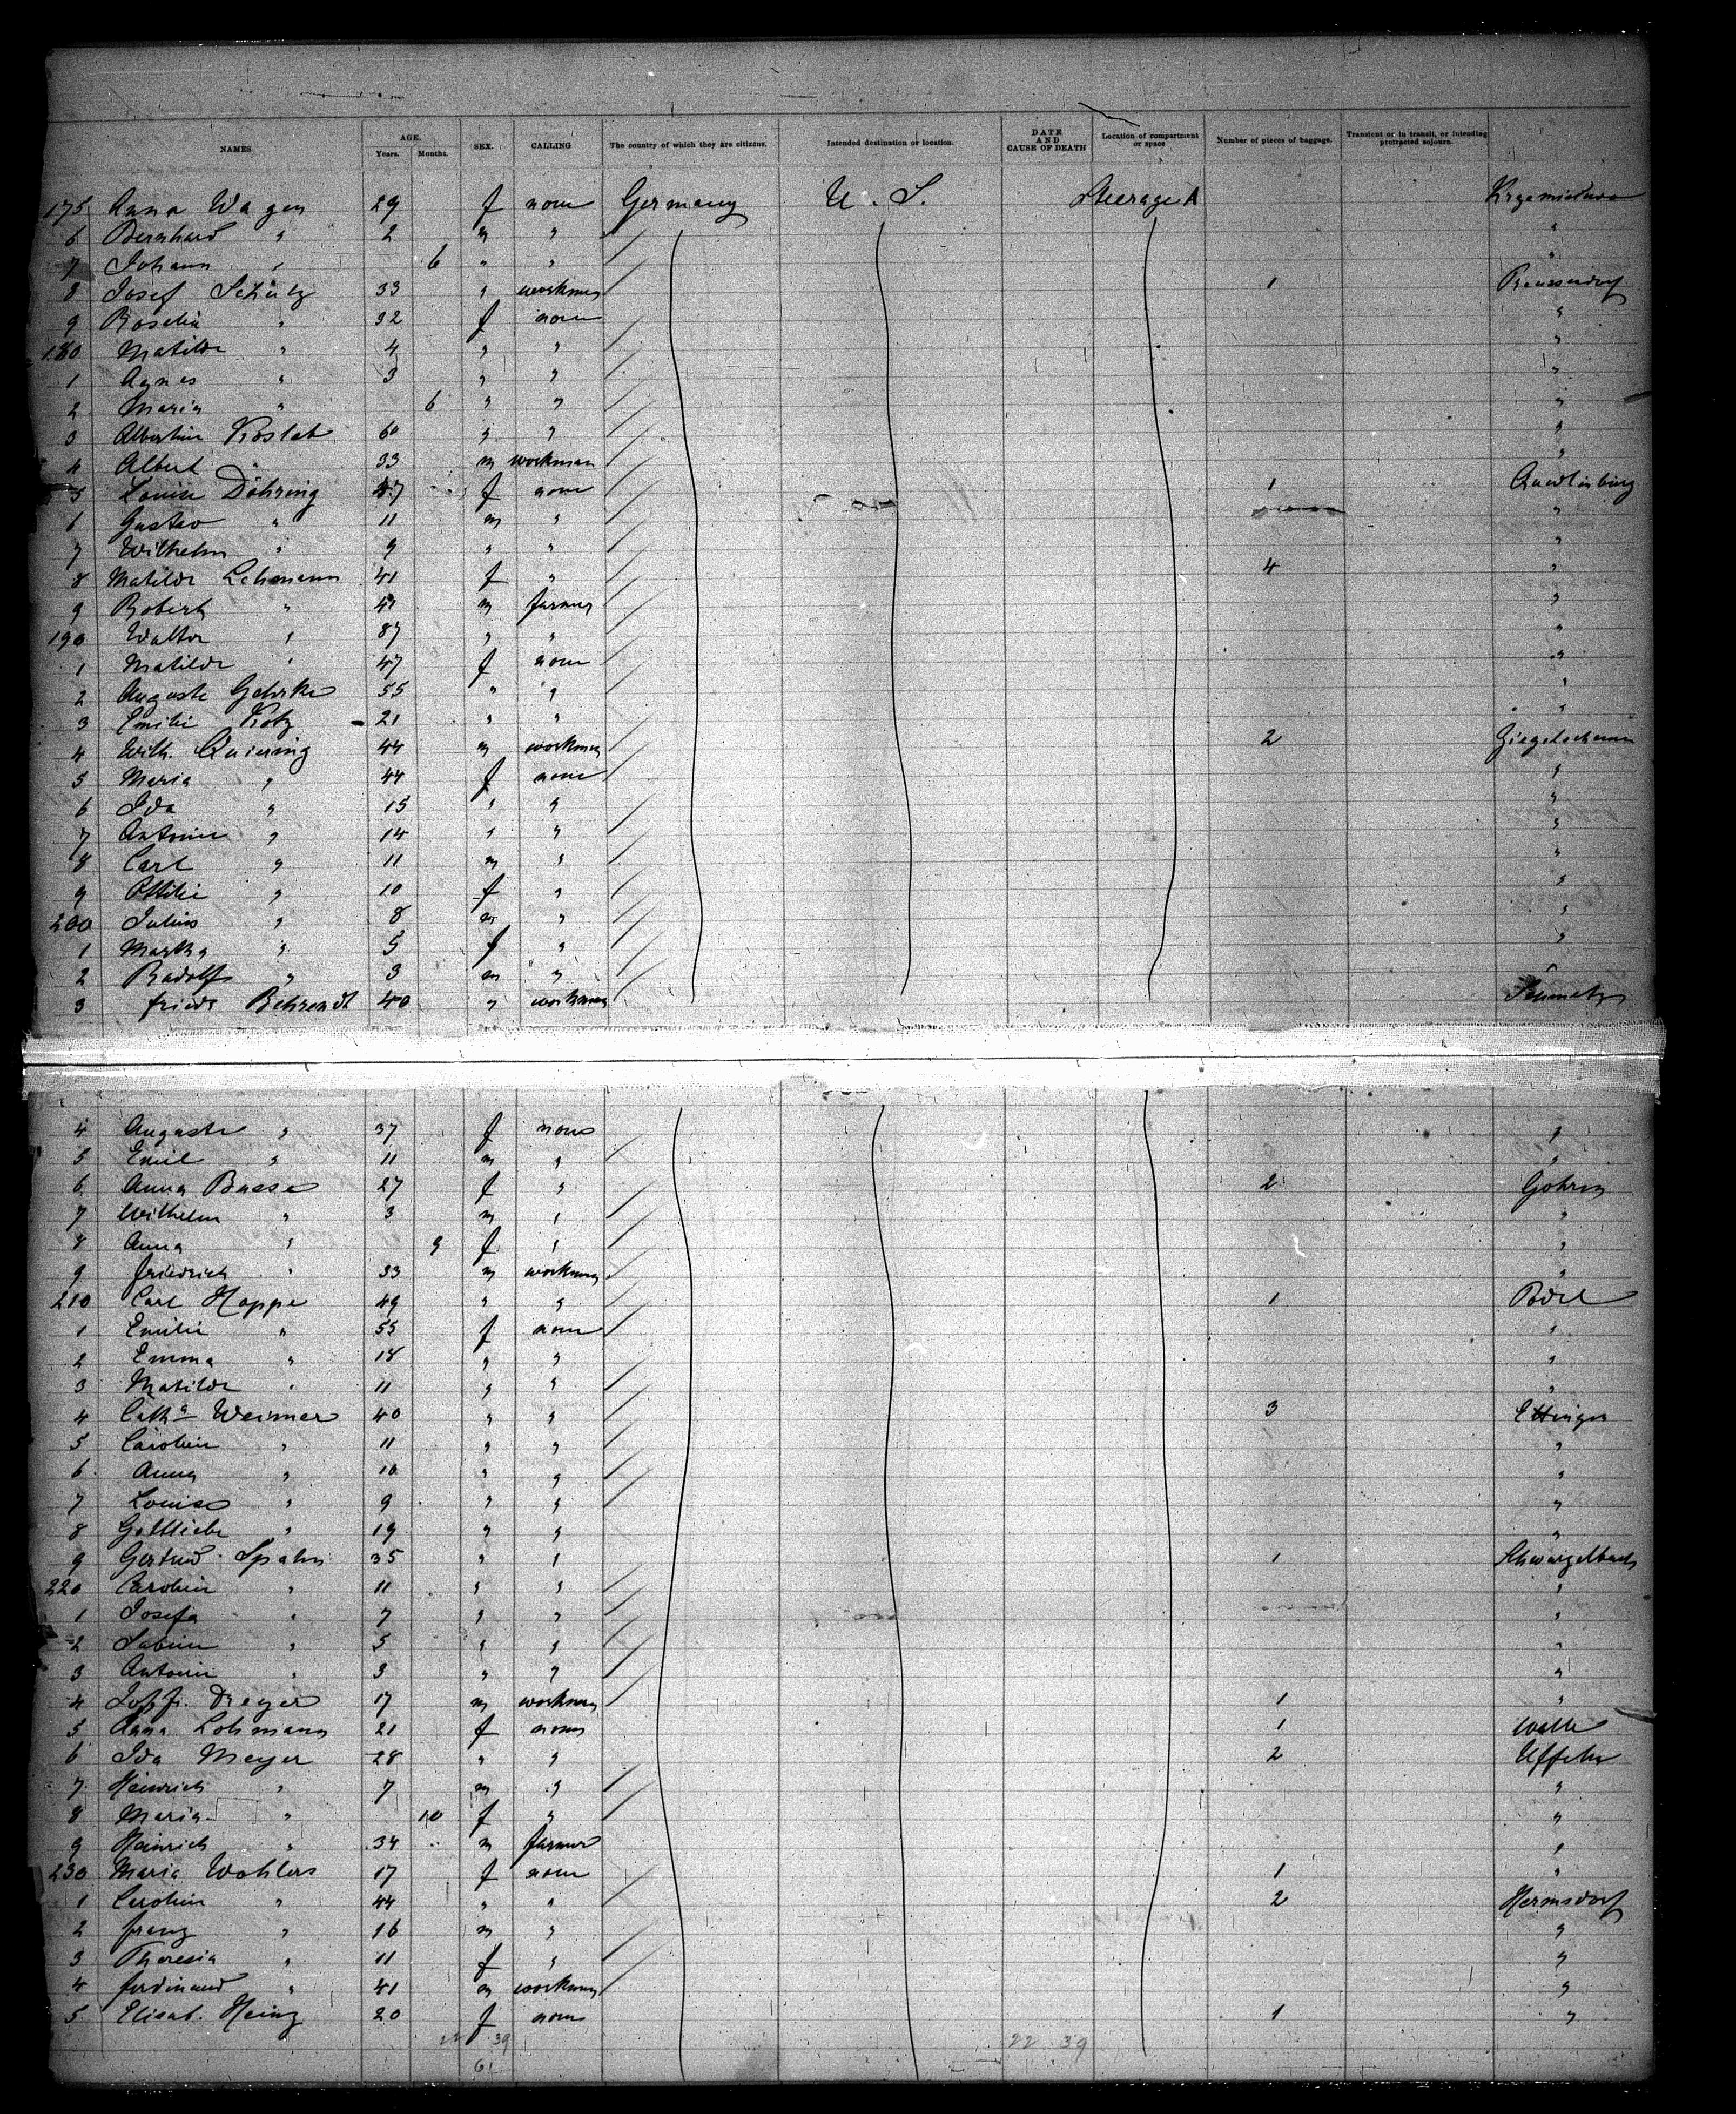 NAMES AGE. Years. Months. SEX. CALLING The country of which they are citizens. Intended destination or location. DATE AND CAUSE OF DEATH Location of compartment or space Number of pieces of baggage. Transient or in transit, or intending protracted sojourn.
175 Anna Wagen 29 f none Germany U. S. Steerage A
6 Bernhard " 2 m " "
7 Johann " 6 " " "
8 Josef Schulz 33 " workman 1
9 Roselia " 32 f none "
180 Matilde " 4 " " "
1 Agnes " 3 " " "
2 Maria " 6 " " "
3 Albertine Koslab 60 " " "
4 Albert " 33 m workman "
5 Louise Döhring 47 f none 1 Quedlinburg
6 Gustav " 11 m " "
7 Wilhelm " 9 " " "
8 Matilde Lehmann 41 f " 4 "
9 Robert " 47 m farmer "
190 Walter " 87 " " "
1 Matilde " 47 f none "
2 Auguste Gehrke 55 " " "
3 Emilie Kotz 21 " " "
4 Wilh. Quiering 44 m workman 2
5 Maria " 44 f none "
6 Ida " 15 " " "
7 Antonie " 14 " " "
8 Carl " 11 m " "
9 Ottilie " 10 f " "
200 Julius " 8 m " "
1 Martha " 5 f " "
2 Rudolf " 3 m " "
3 Friedr Behrendt 40 " workman
4 Auguste " 37 f none "
5 Emil " 11 m " "
6 Anna Basse 27 f " 2 Gohren
7 Wilhelm " 3 m " "
8 Anna " 9 f " "
9 Friedrich " 33 m workman "
210 Carl Hoppe 49 " " 1
1 Emilie " 55 f none "
2 Emma " 18 " " "
3 Matilde " 11 " " "
4 Catha Weimer 40 " " 3 Ettingen
5 Caroline " 11 " " "
6 Anna " 10 " " "
7 Louise " 9 " " "
8 Gottliebe " 19 " " "
9 Gertrud Spahn 35 " " 1
220 Caroline " 11 " " "
1 Josefa " 7 " " "
2 Sabine " 5 " " "
3 Antonie " 3 " " "
4 Dreyer 17 m workman 1 "
5 Anna Lohmann 21 f none 1 Walle
6 Ida Meyer 28 " " 2 Uffeln
7 Heinrich " 7 m " "
8 Maria " 10 f " "
9 Heinrich " 34 m farmer "
230 Maria Wohlers 17 f none 1 "
1 Caroline " 44 " " 2 Hermsdorf
2 Franz " 16 m " "
3 Theresia " 11 f " "
4 Ferdinand " 41 m workman "
5 Elisab. Heinz 20 f none 1 "
22 39 22 39
61